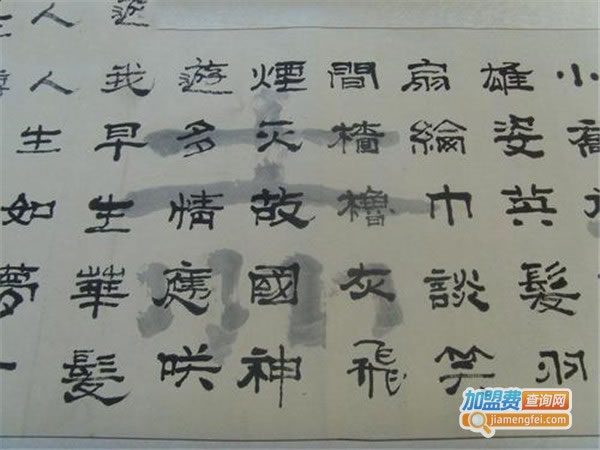 人
小喬
雄姿英髮羽
扇綸巾談笑
間檣櫓灰飛
煙灭故國神
遊多情應咲
我早生華髮
人生如夢一
加盟费查询网
jiamengfei.com